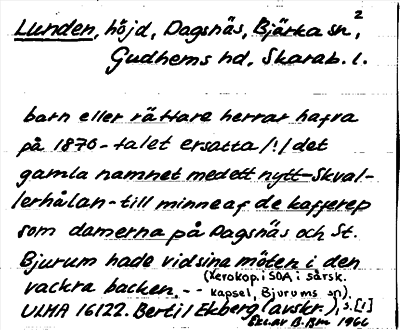 2
Lunden, höjd, Dagsnäs, Bjärka sn,
Gudhems hd, Skarab. l.
barn eller rättare herrar hafva
på 1870-talet ersatta /!/ det
gamla namnet med ett nytt - Skval-
lerhålan - till minne af de kafferep
som damerna på Dagsnäs och St.
Bjurum hade vid sina möten i den
vackra backen. --
(Xerokop. i SOA i särsk.
kapsel, Bjurums sn).
ULMA 16122. Bertil Ekberg (avskr.), s. [1]
Exc. av B. Bm 1966